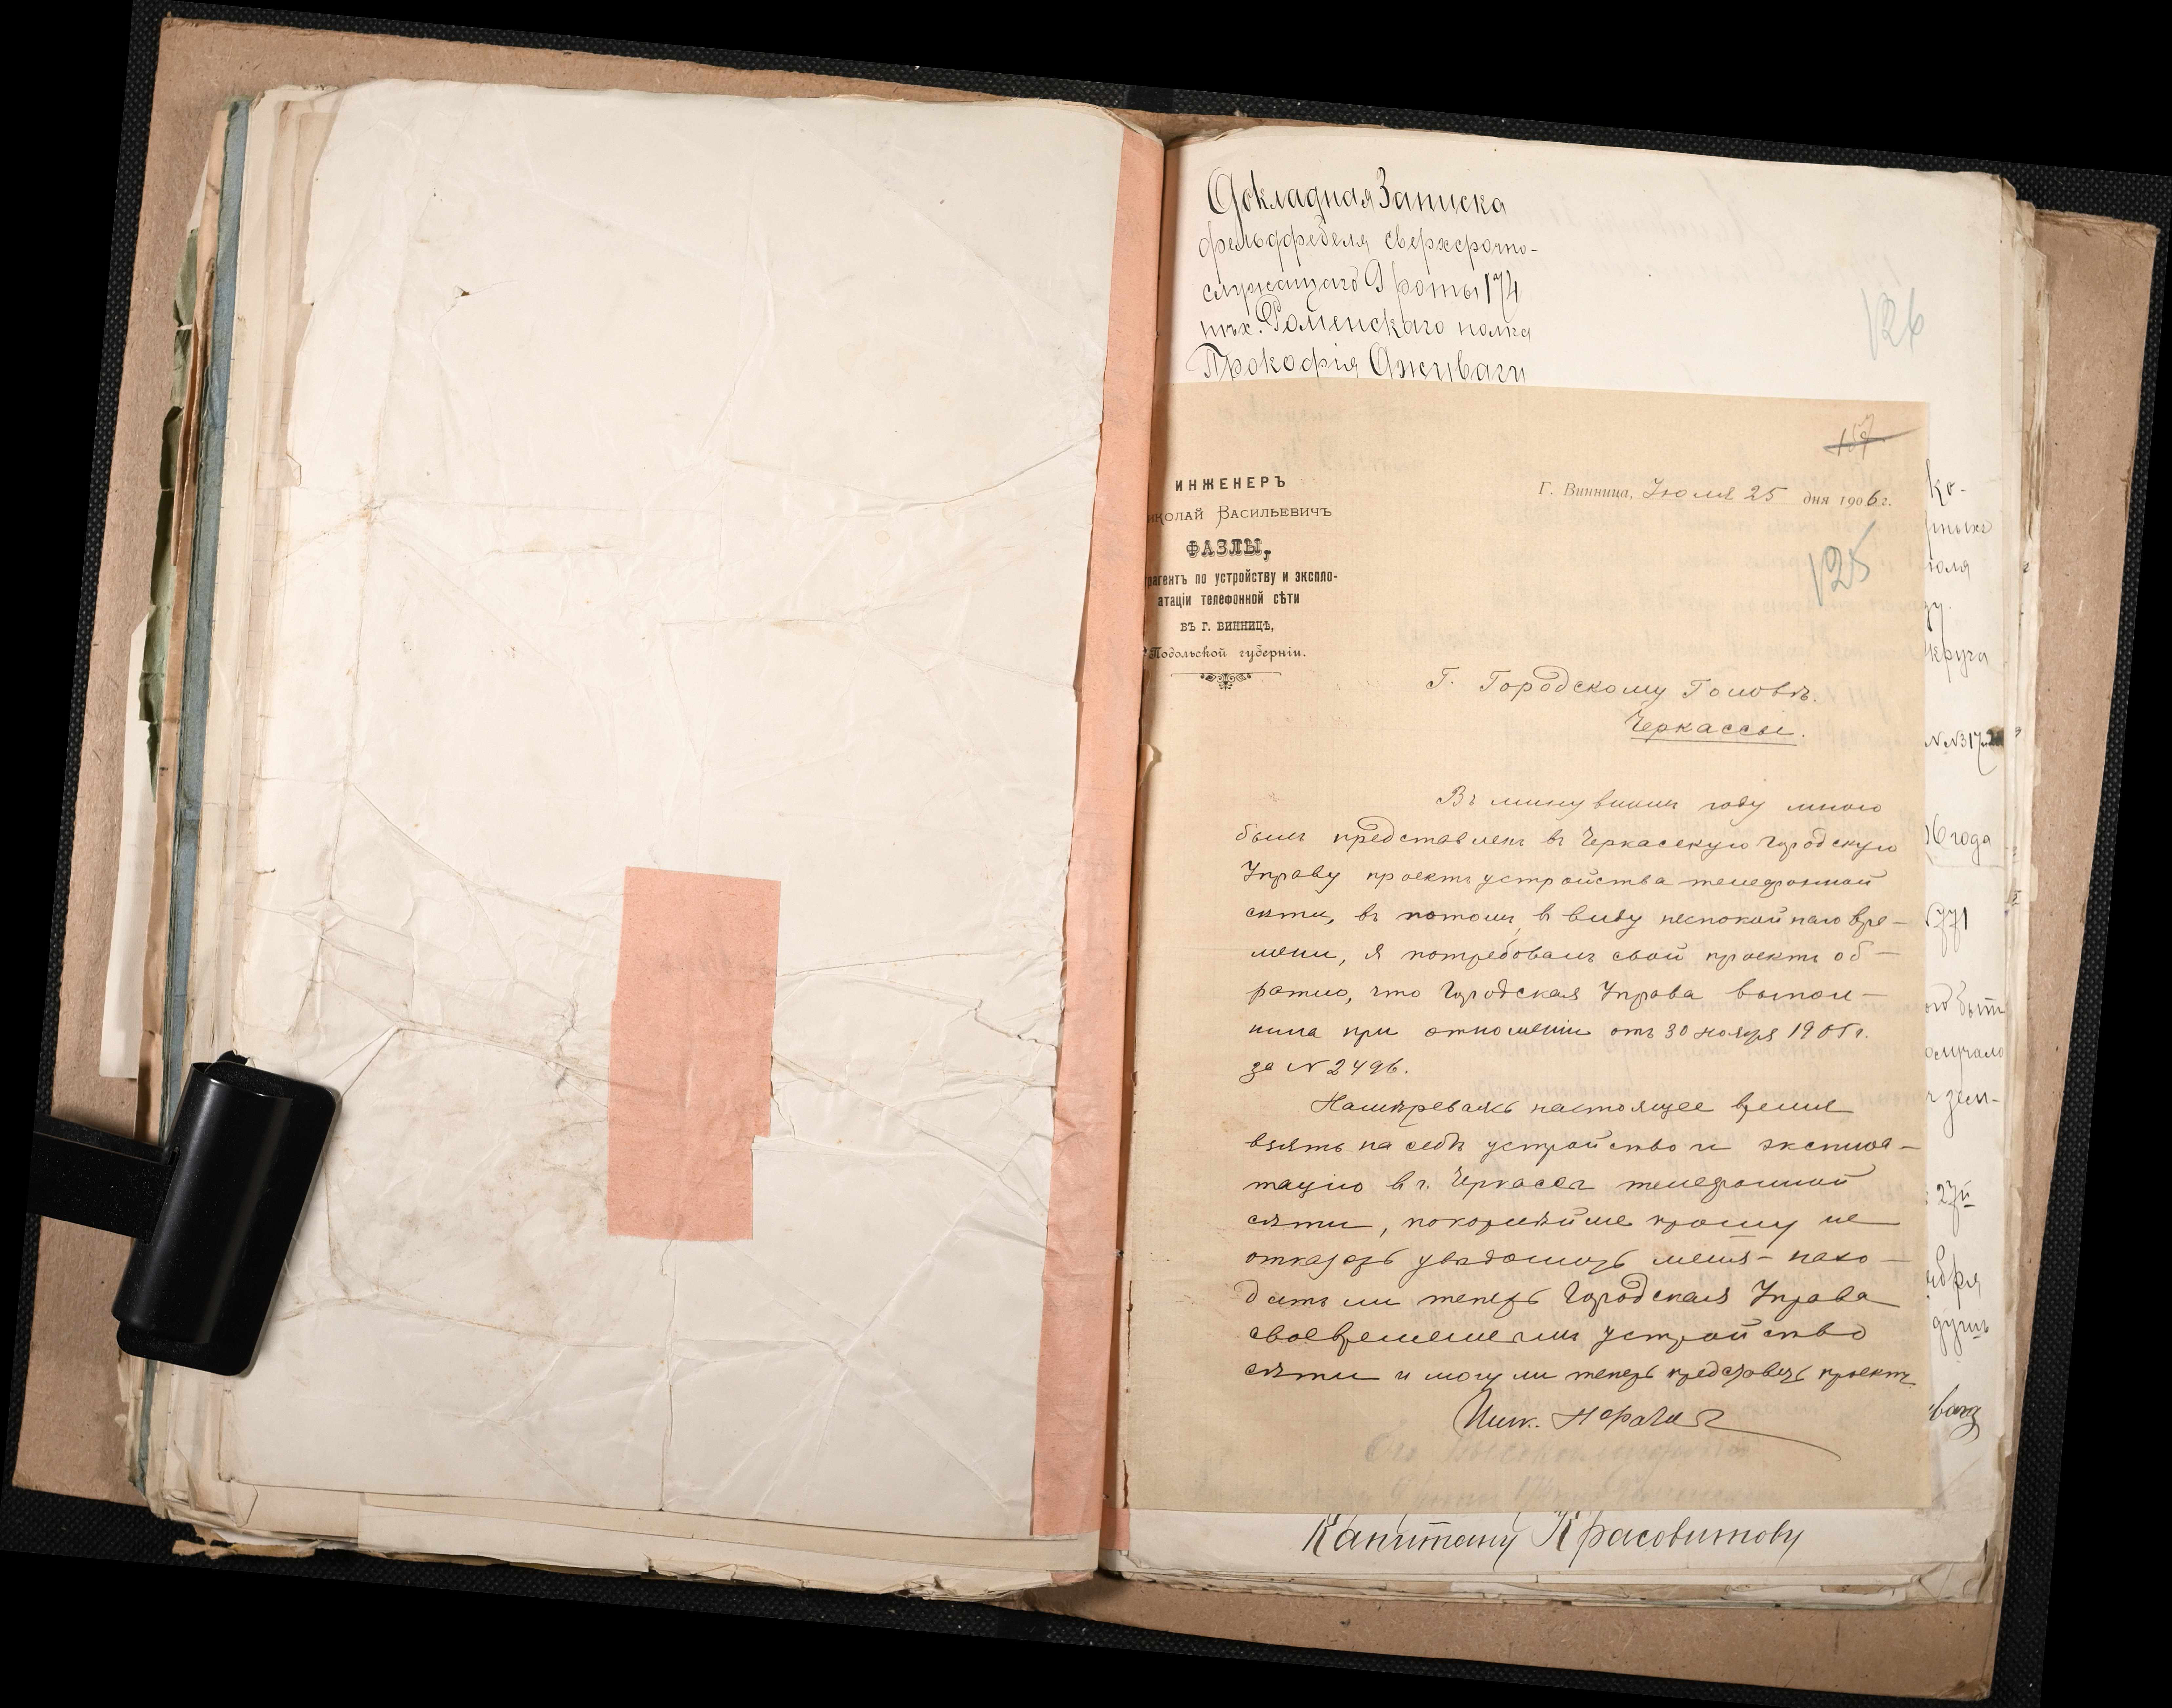 Докладная Записка
фельдфебеля сверхсрочно-
служащаго 9 роты 174
пѣх. Роменскаго полка
Прокофія
126
157
ИНЖЕНЕРЪ
иколай Васильевичъ
ФАЗЛЫ,
рагентъ по устройству и экспло-
атаціи телефонной сѣти
въ г. Винницѣ,
Подольской губерніи.
Г. Винница, Июля 25 дня 1906 г.
125
Г. Городскому Головѣ.
Черкассы.
Въ минувшимъ году мною
былъ представленъ въ Черкасскую Городскую
Управу проектъ устройства телефонной
сѣти, въ потомъ, в виду неспокойнаго вре-
мени, я потребовалъ свой проектъ об-
ратно, что Городская Управа выпол-
нила при отношеніи отъ 30 ноября 1905 г.
за N 2496.
Намѣреваясь настоящее время
взять на себя устройство и эксплоа-
тацію в г. телефонной
сѣти, покорнѣйше прошу не
отказать увѣдомить меня - нахо-
дитъ ли теперь Городская Управа
своевременнымъ устройство
сѣти и могу ли теперь представить проектъ
Инж. Н
Капитану Красовитову
ко-
круга
NN 317
06 года
771
быть
зем-
27й